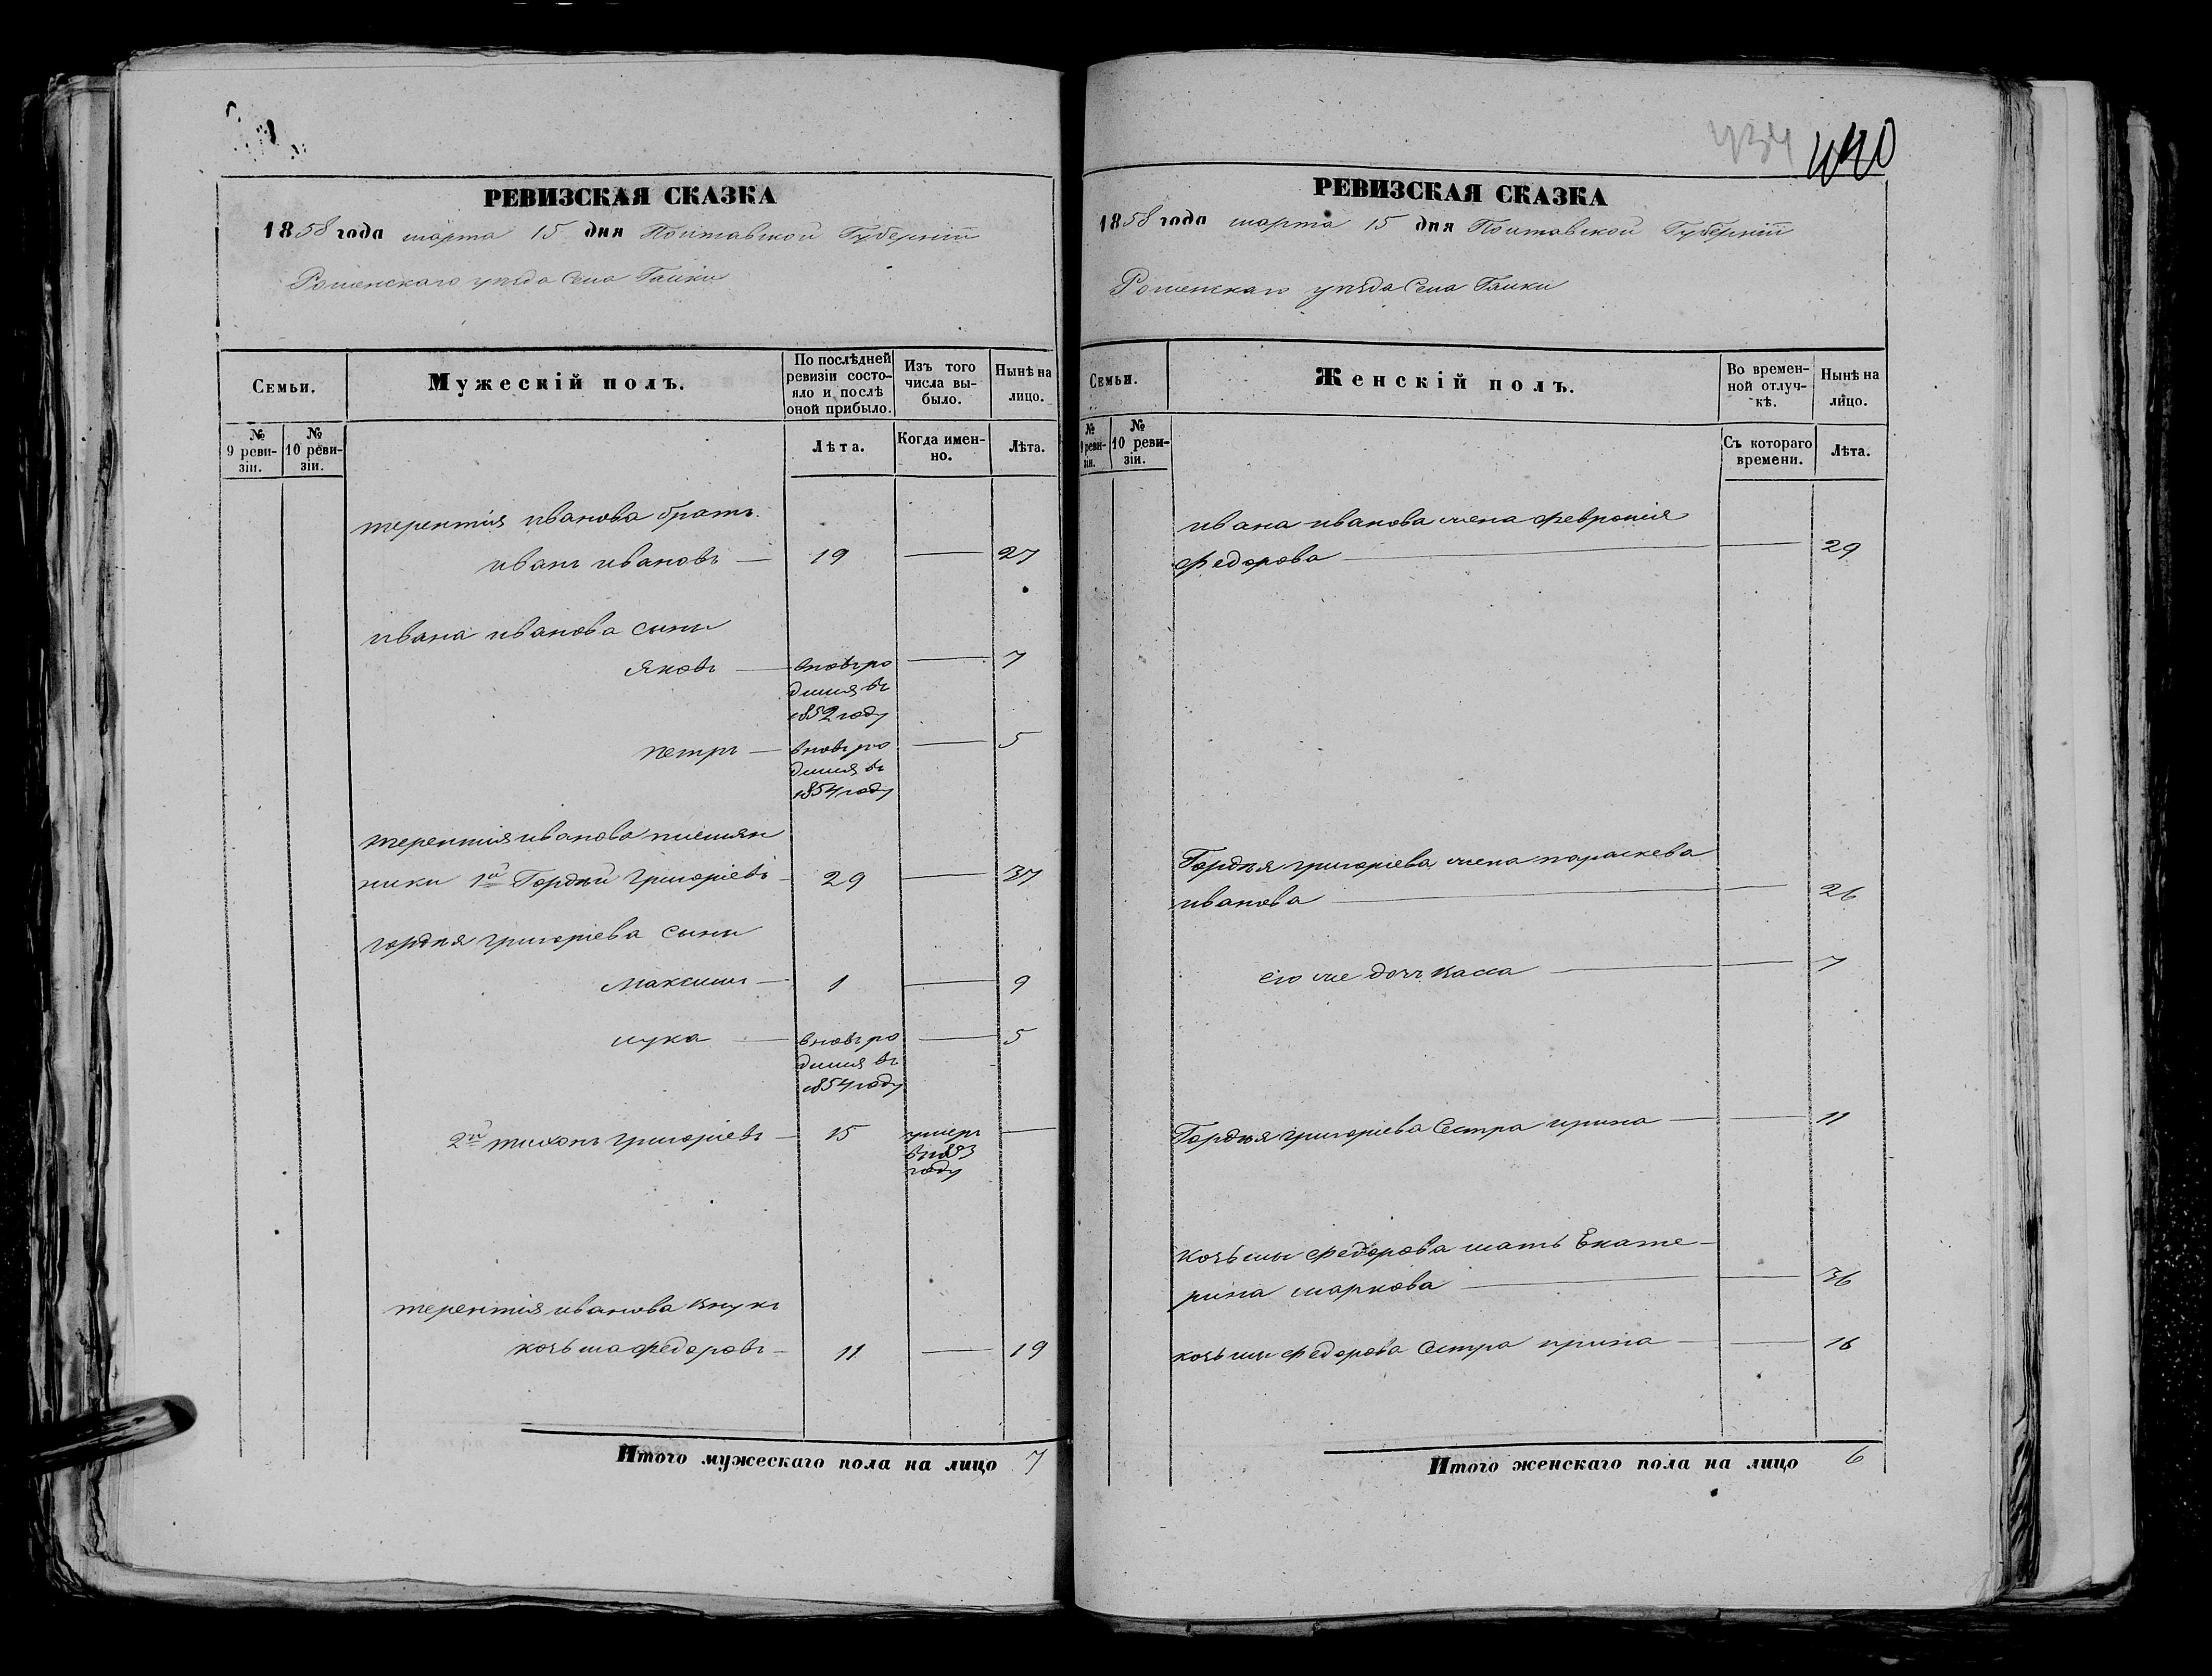 РЕВИЗСКАЯ СКАЗКА
1858 года марта 15 дня Полтавской Губерніи
Роменскаго уѣзда Села Галки
Семьи.
Мужескій полъ.
По послѣдней ревизіи состояло и послѣ оной прибыло.
Изъ того числа выбыло.
Нынѣ на лицо.
№ 9 ревизіи.
№ 10 ревизіи.
Лѣта.
Когда именно.
Лѣта.
терентія иванова братъ
иванъ ивановъ — 19 — 27
ивана иванова сыны
яковъ — вновь ро — 7
дился въ
1852 году
петръ — вновь ро — 5
дился въ
1854 году
терентія иванова племян
ники 1й Гордѣй Григоріевъ — 29 — 37
гордѣя григоріева сыны
Максимъ — 1 — 9
лука — вновь ро — 5
дился въ
1854 году
2й тихонъ григоріевъ — 15 умеръ —
въ 1853
году
терентія иванова внукъ
козьма федоровъ — 11 — 19
Итого мужескаго пола на лицо 7
434 440
РЕВИЗСКАЯ СКАЗКА
1858 года марта 15 дня Полтавской Губерніи
Роменскаго уѣзда Села Галки
Семьи.
Женскій полъ.
Во временной отлучкѣ.
Нынѣ на лицо.
№ 9 ревизіи.
№ 10 ревизіи.
Съ котораго времени.
Лѣта.
ивана иванова жена февронія
федорова — — 29
Гордѣя григоріева жена параскева
иванова — — 26
его же дочь Васса — — 7
Гордѣя григоріева Сестра ирина — — 11
козьмы федорова мать Екате-
рина маркова — — 36
козьмы федорова Сестра ирина — — 16
Итого женскаго пола на лицо 6